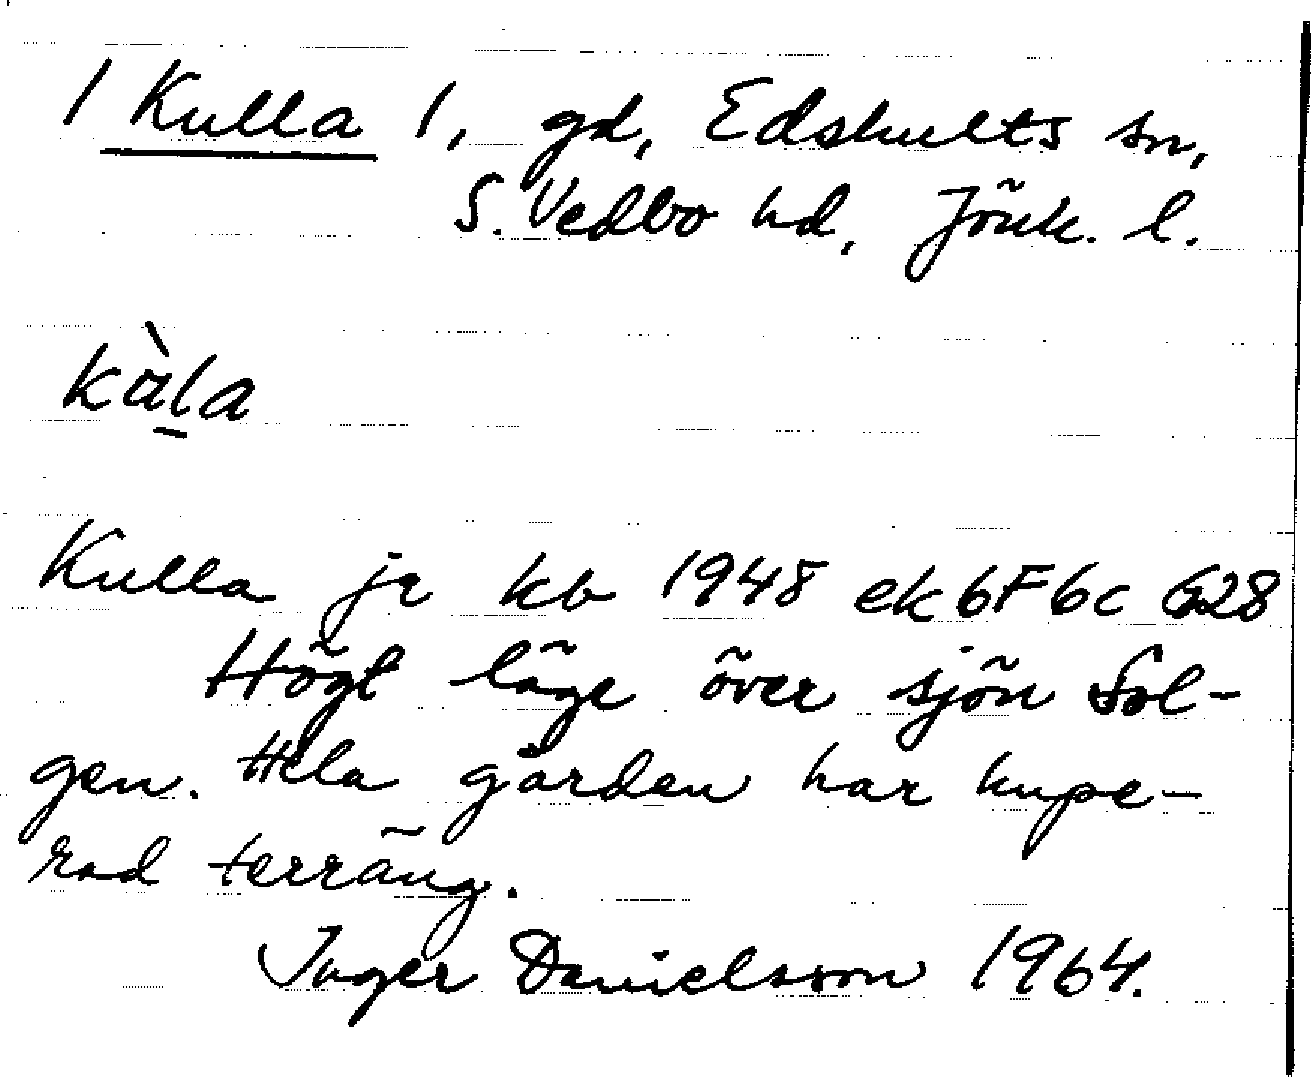 / Kulla /, gd, Edshults sn,
S. Vedbo hd, Jönk. l.
kàl̲a
Kulla je kb 1948 ek 6F6c 628
Högt läge över sjön Sol-
gen. Hela gården har kupe-
rad terräng.
Inger Danielsson 1964.